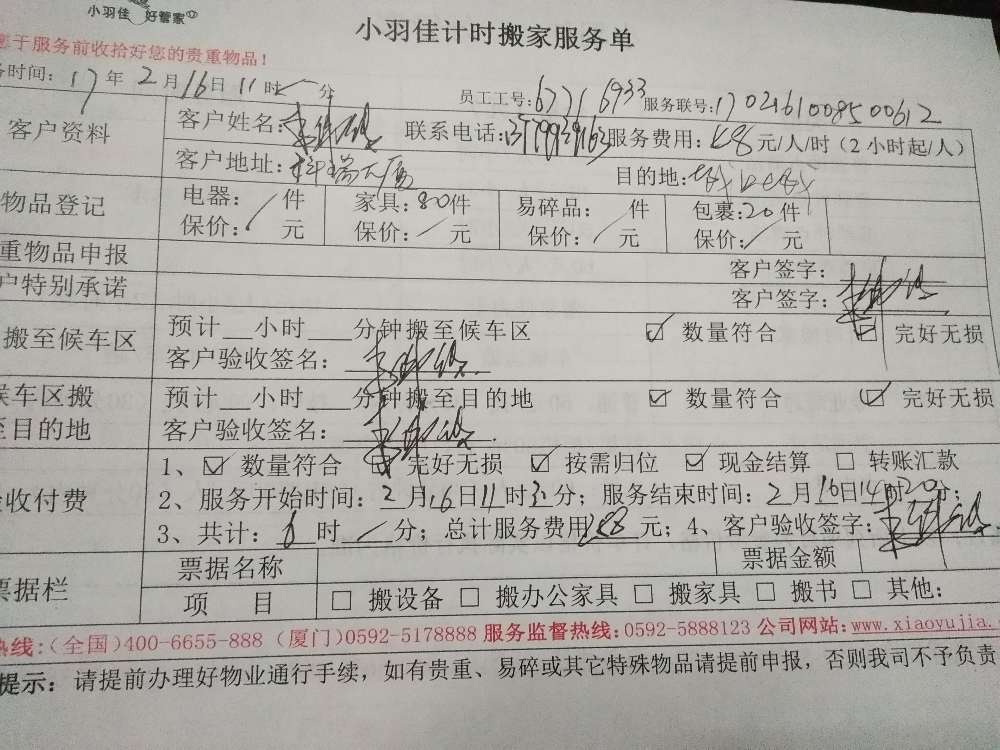 小羽佳 好管家
小羽佳计时搬家服务单
于服务前收拾好您的贵重物品!
时间: 17年2月16日11时 分 员工工号: 67716933 服务联号: 1702161008500612
客户资料 客户姓名: 联系电话: 服务费用: 48元/人/时(2小时起/人)
客户地址: 科瑞大厦 目的地:
物品登记 电器: / 件 家具: 80件 易碎品: / 件 包裹: 20件
保价: / 元 保价: / 元 保价: / 元 保价: / 元
重物品申报 客户签字:
户特别承诺 客户签字:
搬至候车区 预计__小时___分钟搬至候车区 ☑ 数量符合 ☑ 完好无损
客户验收签名:
候车区搬至目的地 预计__小时___分钟搬至目的地 ☑ 数量符合 ☑ 完好无损
客户验收签名:
验收付费 1、☑ 数量符合 ☑ 完好无损 ☑ 按需归位 ☑ 现金结算 □ 转账汇款
2、服务开始时间: 2月16日11时 分; 服务结束时间: 2月16日14时20分;
3、共计: 6时 / 分; 总计服务费用288元; 4、客户验收签字:
票据栏 票据名称 票据金额
项 目 □ 搬设备 □ 搬办公家具 □ 搬家具 □ 搬书 □ 其他:
热线:(全国)400-6655-888 (厦门)0592-5178888 服务监督热线:0592-5888123 公司网站:www.xiaoyujia.
提示: 请提前办理好物业通行手续,如有贵重、易碎或其它特殊物品请提前申报,否则我司不予负责